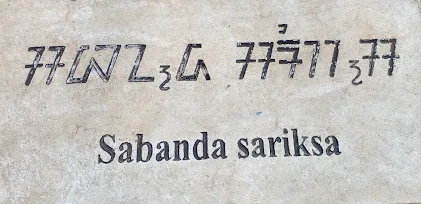 ᮞᮘᮔ᮪ᮓ ᮞᮛᮤᮊ᮪ᮞ
Sabanda sariksa